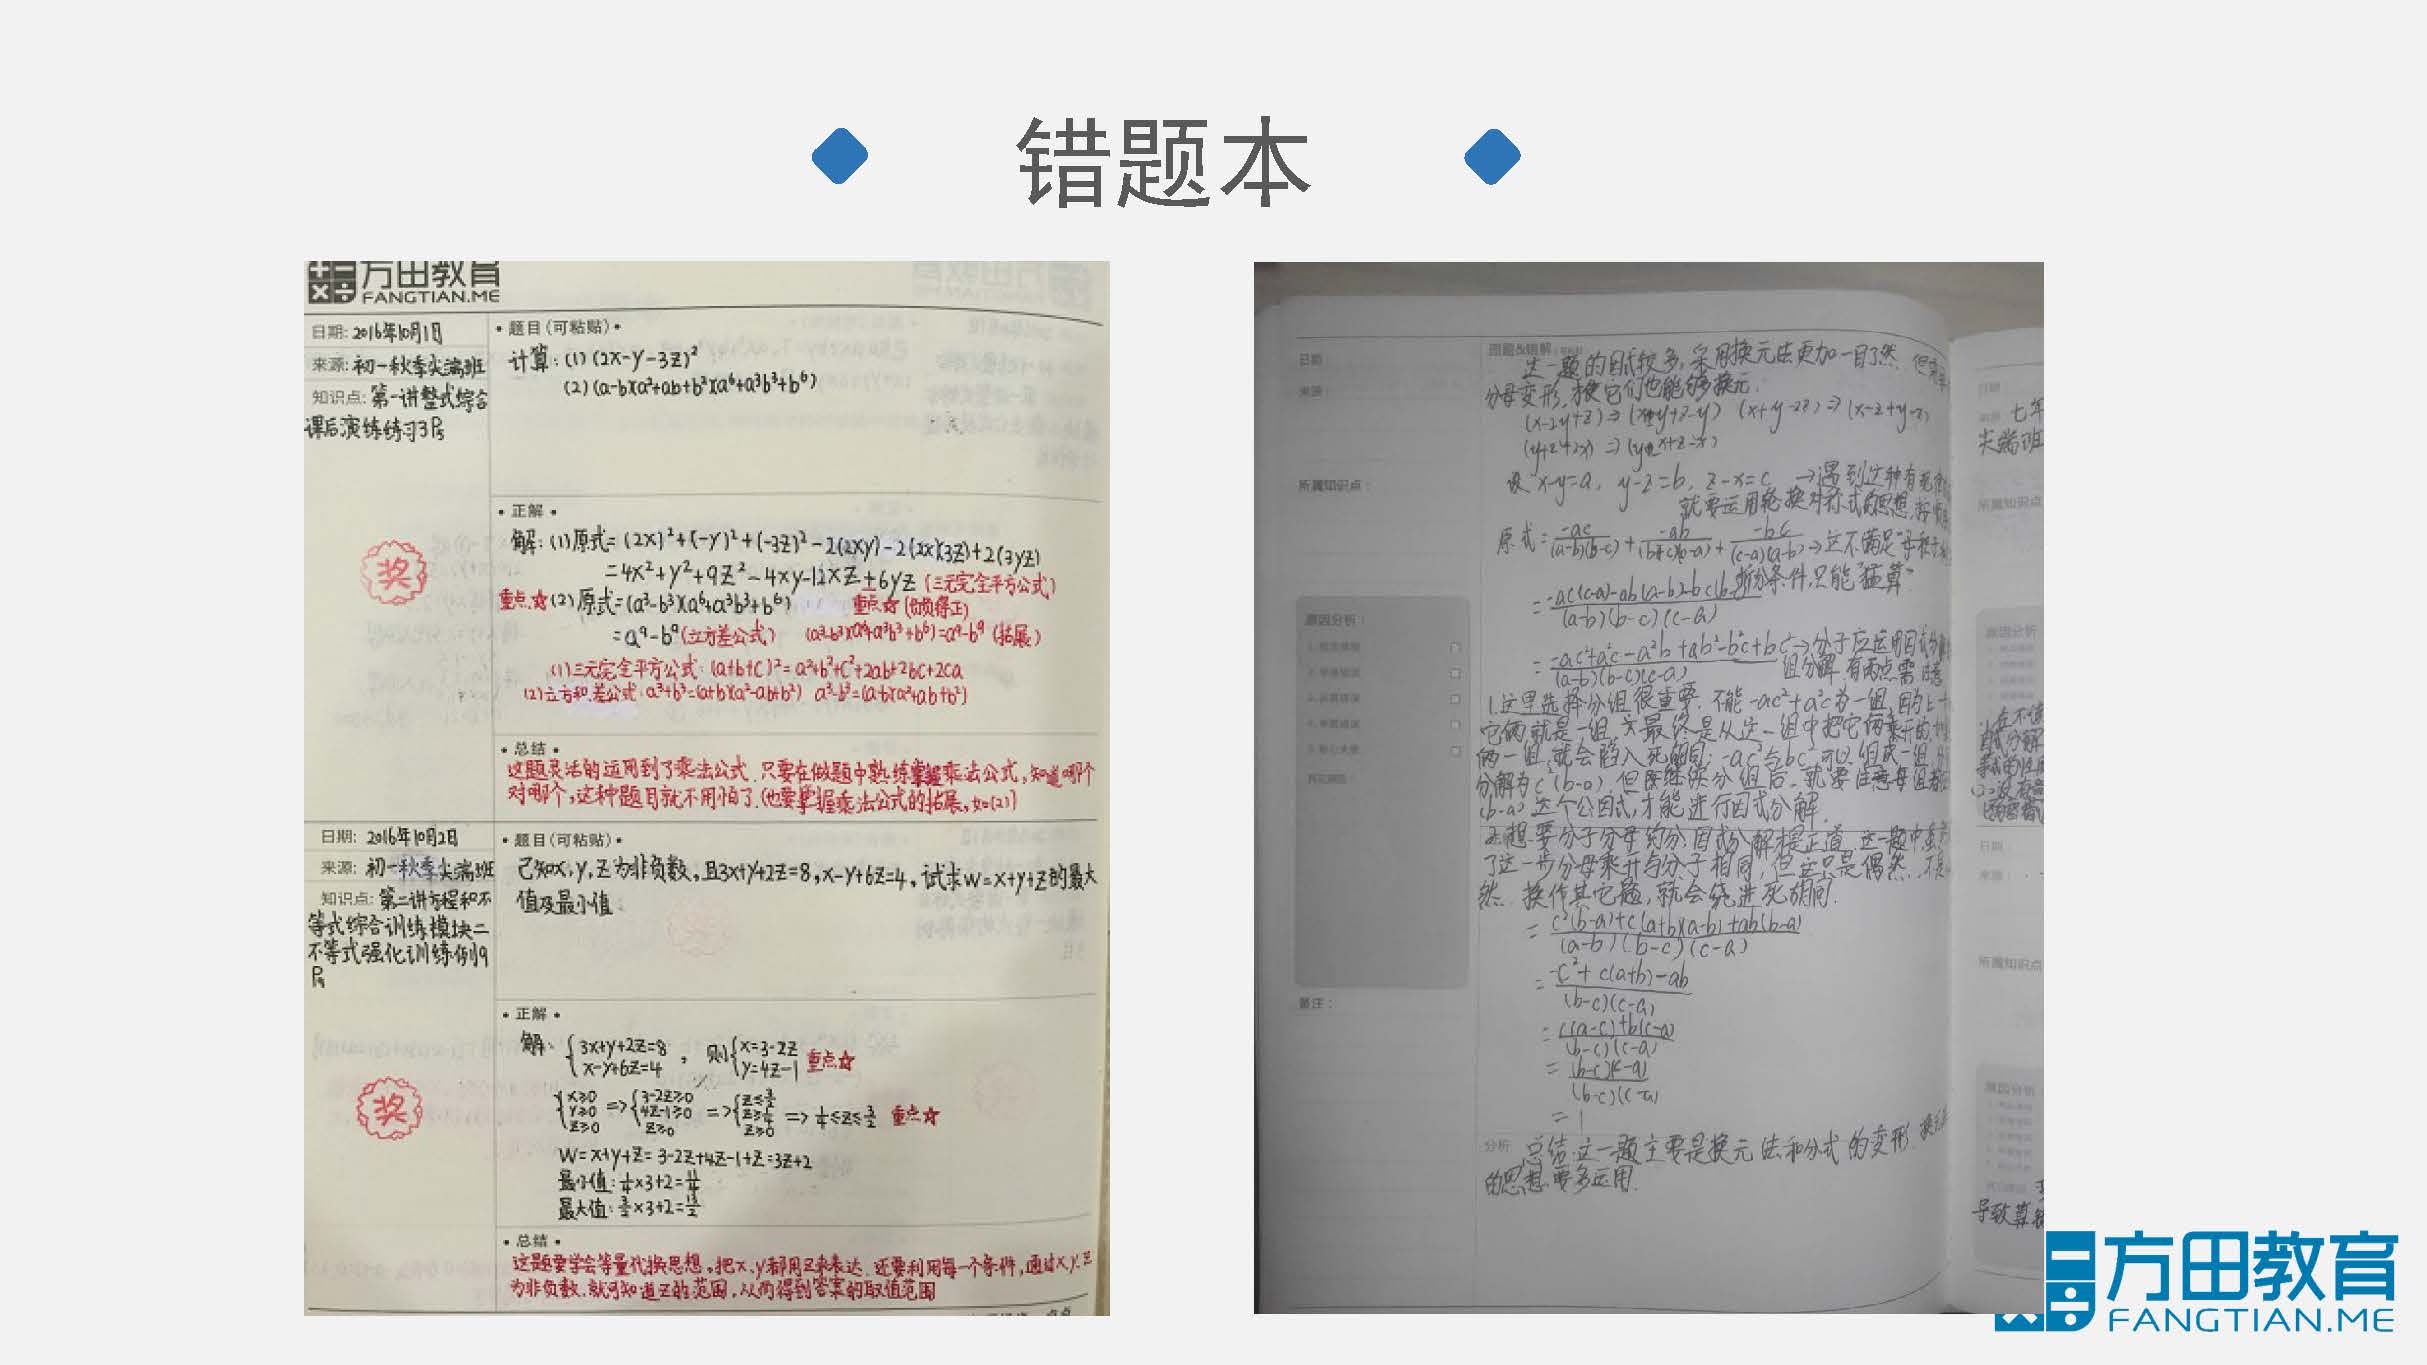 错题本
方田教育
FANGTIAN.ME
日期: 2016年10月1日
来源: 初一秋季尖端班
知识点: 第一讲整式综合
课后演练练习3 P5
·题目(可粘贴)·
计算: (1) (2x-y-3z)²
(2) (a-b)(a²+ab+b²)(a⁶+a³b³+b⁶)
·正解·
奖
解: (1)原式=(2x)²+(-y)²+(-3z)²-2(2xy)-2(2x)(3z)+2(3yz)
=4x²+y²+9z²-4xy-12xz+6yz (三元完全平方公式)
重点☆ (2)原式=(a³-b³)(a⁶+a³b³+b⁶) 重点☆(负负得正)
=a⁹-b⁹(立方差公式) (a³-b³)(a⁶+a³b³+b⁶)=a⁹-b⁹ (拓展)
(1)三元完全平方公式: (a+b+c)²=a²+b²+c²+2ab+2bc+2ca
(2)立方和.差公式: a³+b³=(a+b)(a²-ab+b²) a³-b³=(a-b)(a²+ab+b²)
·总结·
这题灵活的运用到了乘法公式.只要在做题中熟练掌握乘法公式,知道哪个
对哪个,这种题目就不用怕了.(也要掌握乘法公式的拓展,如(2))
日期: 2016年10月2日
来源: 初一秋季尖端班
知识点: 第二讲方程和不
等式综合训练模块二
不等式强化训练例9
·题目(可粘贴)·
已知x,y,z为非负数,且3x+y+2z=8,x-y+6z=4,试求w=x+y+z的最大
值及最小值.
·正解·
奖
解: {3x+y+2z=8 x-y+6z=4 , 则{x=3-2z y=4z-1 重点☆
{x≥0 y≥0 z≥0 => {3-2z≥0 4z-1≥0 z≥0 => {z≤3/2 z≥1/4 z≥0 => 1/4≤z≤3/2 重点☆
W=x+y+z=3-2z+4z-1+z=3z+2
最小值: 1/4×3+2=11/4
最大值: 3/2×3+2=13/2
·总结·
这题要学会等量代换思想,把x.y都用z来表达.还要利用每一个条件,通过x.y.z
为非负数.就可知道z的范围,从而得到答案的取值范围
日期
来源:
所属知识点:
原因分析:
备注:
这一题的因式较多,采用换元法更加一目了然.
分母变形,把它们也能够换元.
设 x-y=a, y-z=b, z-x=c →遇到这种有
就要运用轮换对称式的思想.
原式=-ac/(a-b)(b-c)+-ab/(b-c)(c-a)+-bc/(c-a)(a-b)→这不满足
拆分条件,只能"猛算"
=-ac(c-a)-ab(a-b)-bc(b-c)/(a-b)(b-c)(c-a)
=-ac²+a²c-a²b+ab²-b²c+bc²/(a-b)(b-c)(c-a)→分子应运用
组分解.有两点需
1.这里选择分组很重要.不能-ac²+a²c为一组,因为
它俩就是一组,最终是从这一组中把它俩乘开的
俩一组,就会陷入死胡同;-ac²与bc²可以组成一组,
分解为c²(b-a),但继续分组后,就要注意每组都
(b-a)这个公因式,才能进行因式分解.
2.想要分子分母约分,因式分解才是正道,这一题中
了这一步分母乘开与分子相同,但这只是偶然,
然.换作其它题,就会绕进死胡同.
=c²(b-a)+c(a+b)(a-b)+ab(b-a)/(a-b)(b-c)(c-a)
=-c²+c(a+b)-ab/(b-c)(c-a)
=c(a-c)+b(c-a)/(b-c)(c-a)
=(b-c)(c-a)/(b-c)(c-a)
=1
分析
总结:这一题主要是换元法和分式的变形.
的思想要多运用.
七年
尖端班
所属知识点
原因分析
日期:
来源:
所属知识点
原因分析
方田教育
FANGTIAN.ME